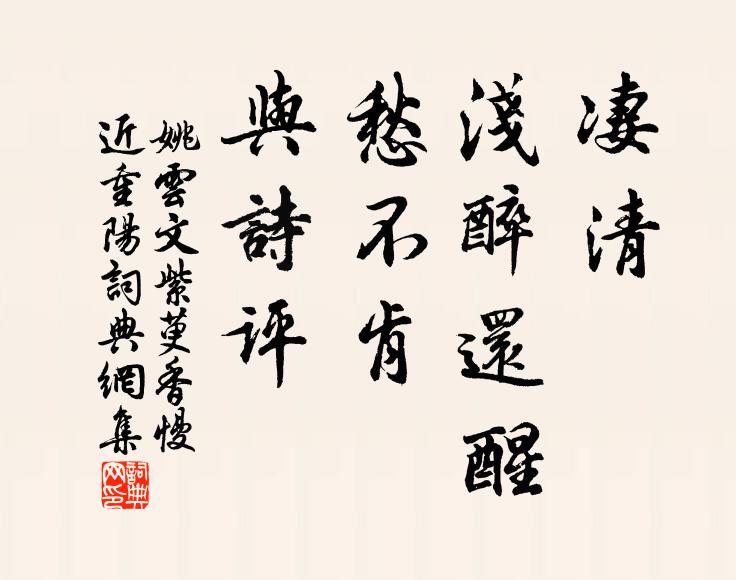 凄清
淺醉還醒
愁不肯
與詩評
姚雲文紫萸香慢
近重陽詞典網集
詞典网印